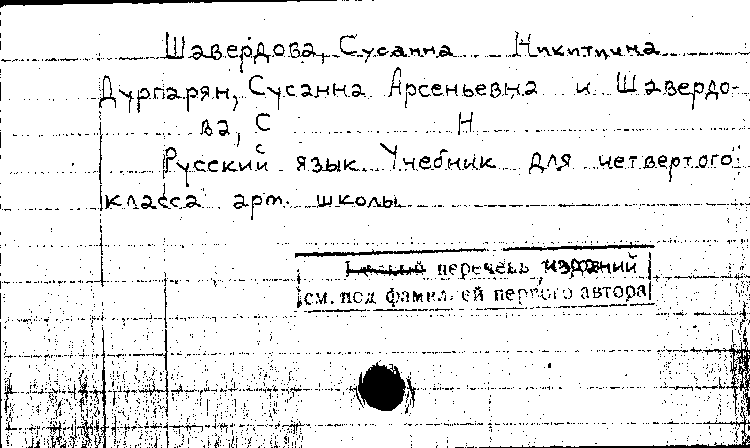 Шавердова, Сусанна Никитична
Дургарян, Сусанна Арсеньевна и Шавердо-
ва, С Н
с
Русский язык. Учебник для четвертого
класса арм. школы
перечень изданий
см. под фамил. ей первого автора